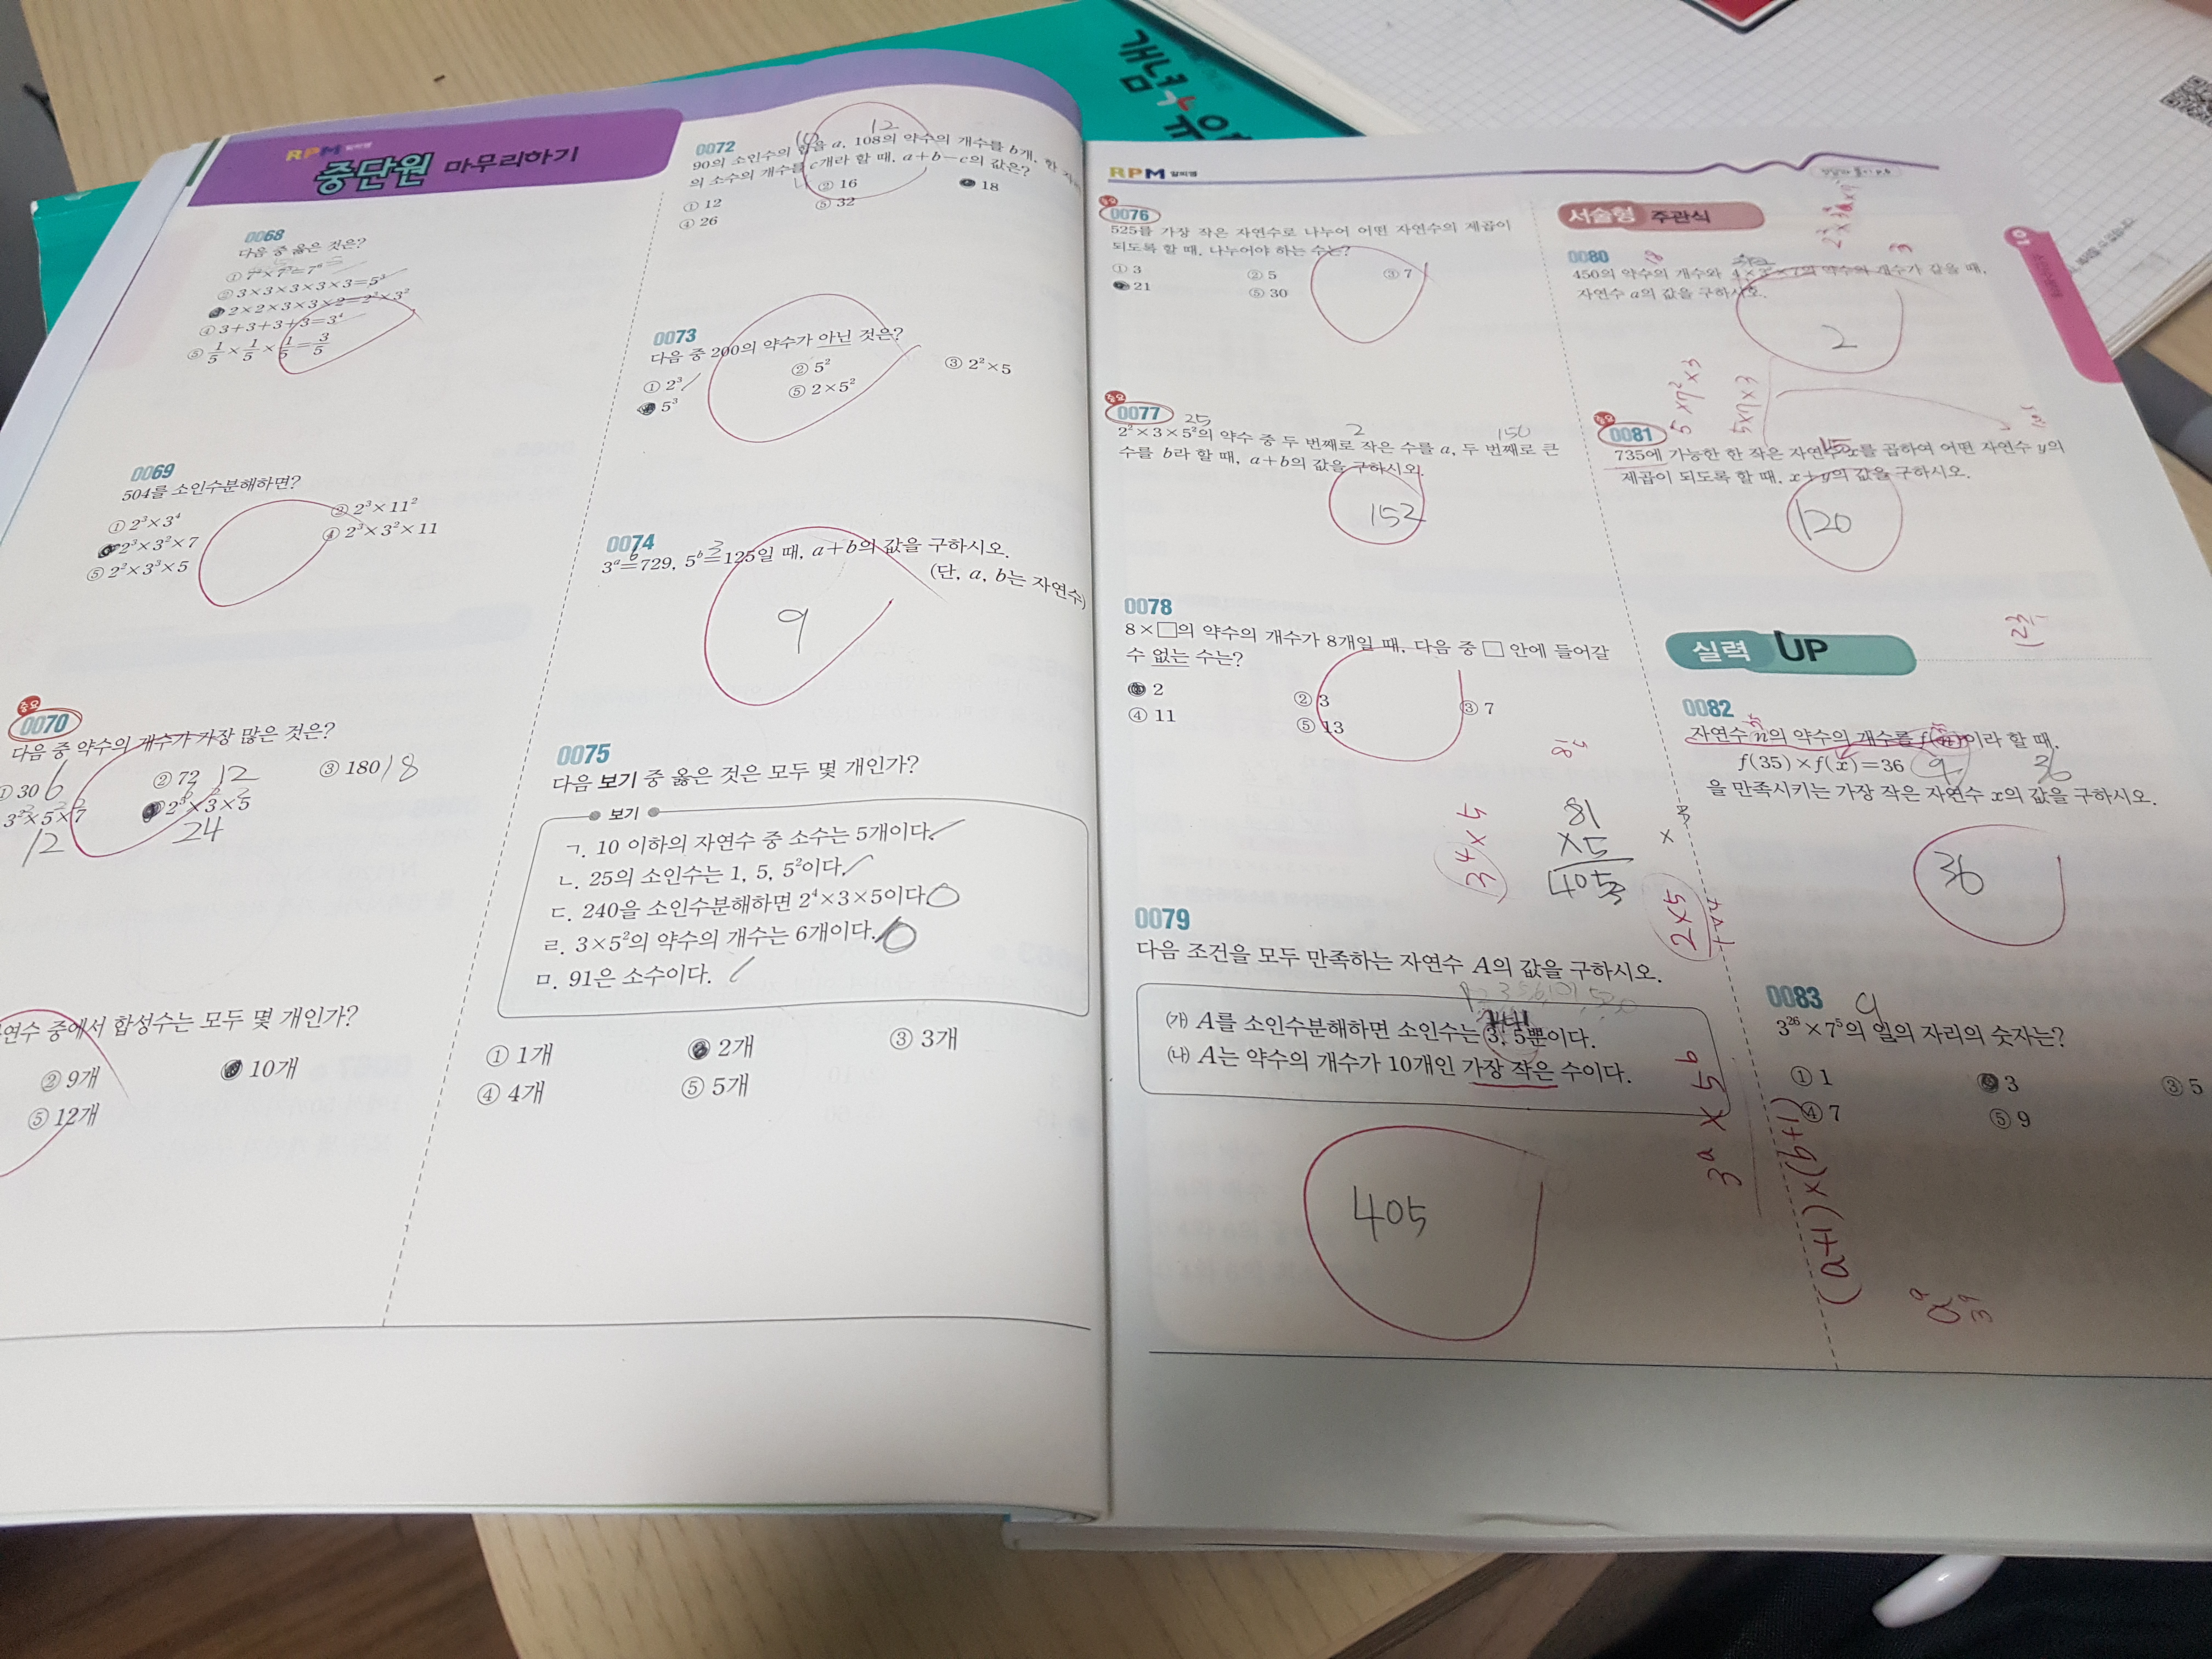 개념+유
RPM 알피엠
중단원 마무리하기
0068
다음 중 옳은 것은?
② 3×3×3×3×3=5³
③ 2×2×3×3×2=2³×3²
④ 3+3+3+3=3⁴
⑤ 1/5×1/5×1/5=3/5
0069
504를 소인수분해하면?
① 2³×3⁴
② 2³×11²
③ 2³×3²×7
④ 2³×3²×11
⑤ 2²×3³×5
중요
0070
다음 중 약수의 개수가 가장 많은 것은?
① 30 6
② 72 12
③ 180 18
3²×5×7
12
24
연수 중에서 합성수는 모두 몇 개인가?
② 9개
10개
⑤ 12개
0072
10 12
90의 소인수의 합을 a, 108의 약수의 개수를 b개, 한 자리
의 소수의 개수를 c개라 할 때, a+b-c의 값은?
4
① 12
② 16
18
④ 26
⑤ 32
0073
다음 중 200의 약수가 아닌 것은?
① 2³
② 5²
③ 2²×5
5³
⑤ 2×5²
0074
6 3
3ᵃ=729, 5ᵇ=125일 때, a+b의 값을 구하시오.
(단, a, b는 자연수)
9
0075
다음 보기 중 옳은 것은 모두 몇 개인가?
보기
ㄱ. 10 이하의 자연수 중 소수는 5개이다.
ㄴ. 25의 소인수는 1, 5, 5²이다.
ㄷ. 240을 소인수분해하면 2⁴×3×5이다.
ㄹ. 3×5²의 약수의 개수는 6개이다.
ㅁ. 91은 소수이다.
① 1개
2개
③ 3개
④ 4개
⑤ 5개
RPM 알피엠
중요
0076
525를 가장 작은 자연수로 나누어 어떤 자연수의 제곱이
되도록 할 때, 나누어야 하는 수는?
① 3
② 5
③ 7
21
⑤ 30
중요
0077
25 2 150
2²×3×5²의 약수 중 두 번째로 작은 수를 a, 두 번째로 큰
수를 b라 할 때, a+b의 값을 구하시오.
152
0078
8×□의 약수의 개수가 8개일 때, 다음 중 □ 안에 들어갈
수 없는 수는?
2
② 3
③ 7
④ 11
⑤ 13
81
×5
405
34×5
2×5
0079
다음 조건을 모두 만족하는 자연수 A의 값을 구하시오.
㈎ A를 소인수분해하면 소인수는 3, 5뿐이다.
㈏ A는 약수의 개수가 10개인 가장 작은 수이다.
405
3ᵃ×5ᵇ
(a+1)×(b+1)
서술형 주관식
0080
18
자연수 a의 값을 구하시오.
2
5×7²×3
3×7×5
중요
0081
15
735에 가능한 한 작은 자연수 x를 곱하여 어떤 자연수 y의
제곱이 되도록 할 때, x+y의 값을 구하시오.
120
실력 UP
0082
자연수 n의 약수의 개수를 f(n)이라 할 때,
f(35)×f(x)=36
9 36
을 만족시키는 가장 작은 자연수 x의 값을 구하시오.
36
0083
9
3²⁶×7⁵의 일의 자리의 숫자는?
① 1
3
③ 5
④ 7
⑤ 9